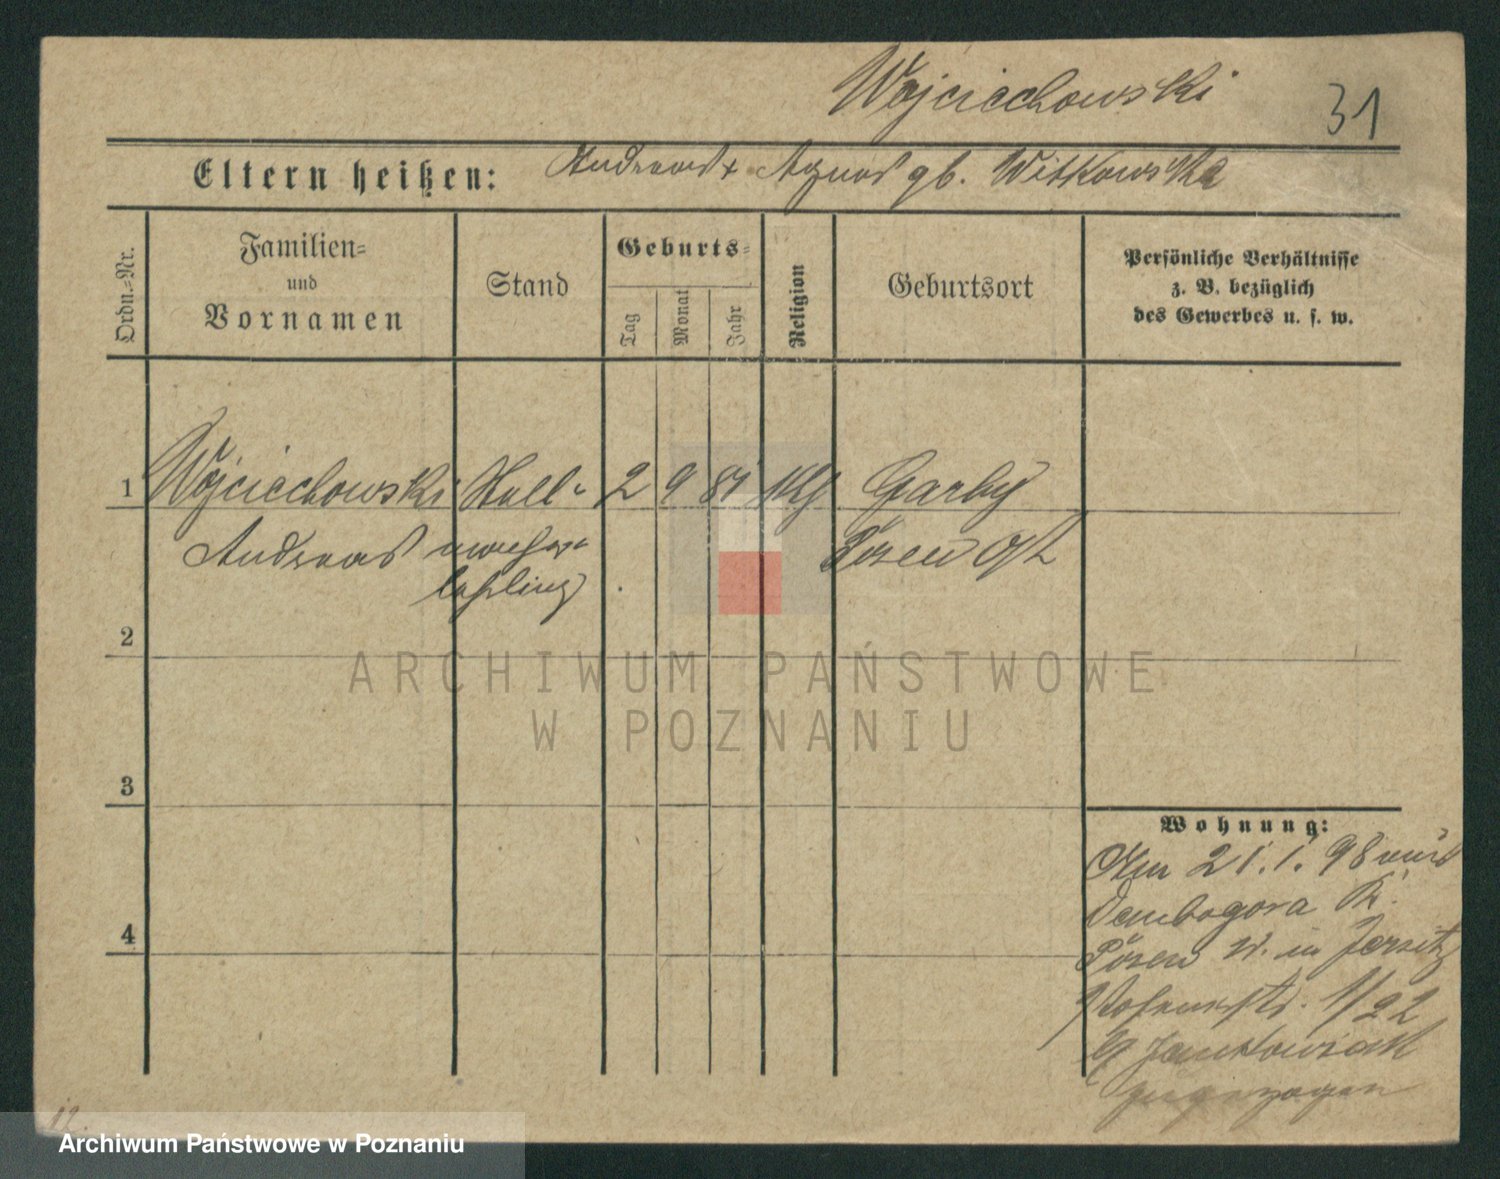 Wojciechowski
31
Eltern heißen: Andreas + Agnes gb. Witkowska
Ordn.=Nr.
Familien=
und
Vornamen
Stand
Geburts=
Tag
Monat
Jahr
Religion
Geburtsort
Persönliche Verhältnisse
z. B. bezüglich
des Gewerbes u. s. w.
1 Wojciechowski Stell- 2 9 81 Garby
Andreas
Posen Ost
lehrling
2
ARCHIWUM PAŃSTWOWE
W POZNANIU
3
4
Wohnung:
Am 21.1.98 aus
Dembogora Kr.
Posen W. in Jersitz
1/22
Jankowiak
zugezogen
12.
Archiwum Państwowe w Poznaniu